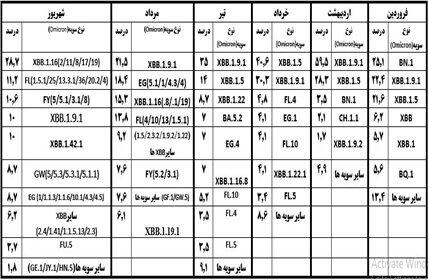 فروردین | درصد | اردیبهشت | درصد | خرداد | درصد | تیر | درصد | مرداد | درصد | شهریور | درصد
نوع سویه(Omicron) | نوع سویه(Omicron) | نوع سویه(Omicron) | نوع سویه(Omicron) | نوع سویه(Omicron) | نوع سویه(Omicron)
BN.1 | ۲۵,۱ | XBB.1.9.1 | ۵۹,۵ | XBB.1.5 | ۴۰,۶ | XBB.1.9.1 | ۳۵ | XBB.1.9.1 | ۲۱,۵ | XBB.1.16(2/11/8/17/19) | ۲۸,۷
XBB.1.9.1 | ۲۲,۴ | XBB.1.5 | ۲۸,۳ | XBB.1.9.1 | ۳۰,۳ | XBB.1.5 | ۱۴ | EG(5.1/1/4.3/4) | ۱۸,۴ | FL(1.5.1/25/13.3.1/36/20.2/4) | ۱۱,۲
XBB.1.5 | ۲۱,۶ | BN.1 | ۳,۵ | FL.4 | ۴,۸ | XBB.1.22 | ۸,۷ | XBB.1.16(.8/.1/19) | ۱۵,۳ | FY(5/5.1/3.1/8) | ۱۰,۶
XBB | ۶,۲ | CH.1.1 | ۲,۱ | EG.1 | ۴,۱ | BA.5.2 | ۷ | FL(4/10/13/1.5.1) | ۱۳,۸ | XBB.1.9.1 | ۱۰
XBB.1 | ۵,۷ | سایر سویه ها | ۱,۷ | FL.10 | ۴,۱ | EG.4 | ۷ | (1.5/2.3.2/1.9.2/1.22) سایرXBB ها | ۹,۲ | XBB.1.42.1 | ۱۰
BQ.1 | ۵,۶ | سایر سویه ها | ۴,۹ | XBB.1.22.1 | ۴,۱ | XBB.1.16.8 | ۷ | FY(5.2/3.1) | ۷,۶ | GW(5/5.3/5.3.1/5.1.1) | ۸,۷
سایر سویه ها | ۱۳,۴ | FL.5 | ۳,۴ | FL.10 | ۵,۲ | سایر سویه ها (GF.1/GW.5) | ۷,۶ | EG (1/1.1.3/1.1.6/10.1/4.3/4.5) | ۸,۷
سایر سویه ها | ۸,۶ | FL.4 | ۳,۵ | XBB.1.19.1 | ۶,۱ | سایرXBB | ۶,۲
(2.4/1.41/1.1.5.13/2.3)
FL.5 | ۳,۵ | FU.5 | ۳,۷
سایر سویه ها | ۹,۱ | سایر سویه ها(GE.1/JY.1/HN.5) | ۱,۸
Activate Wind